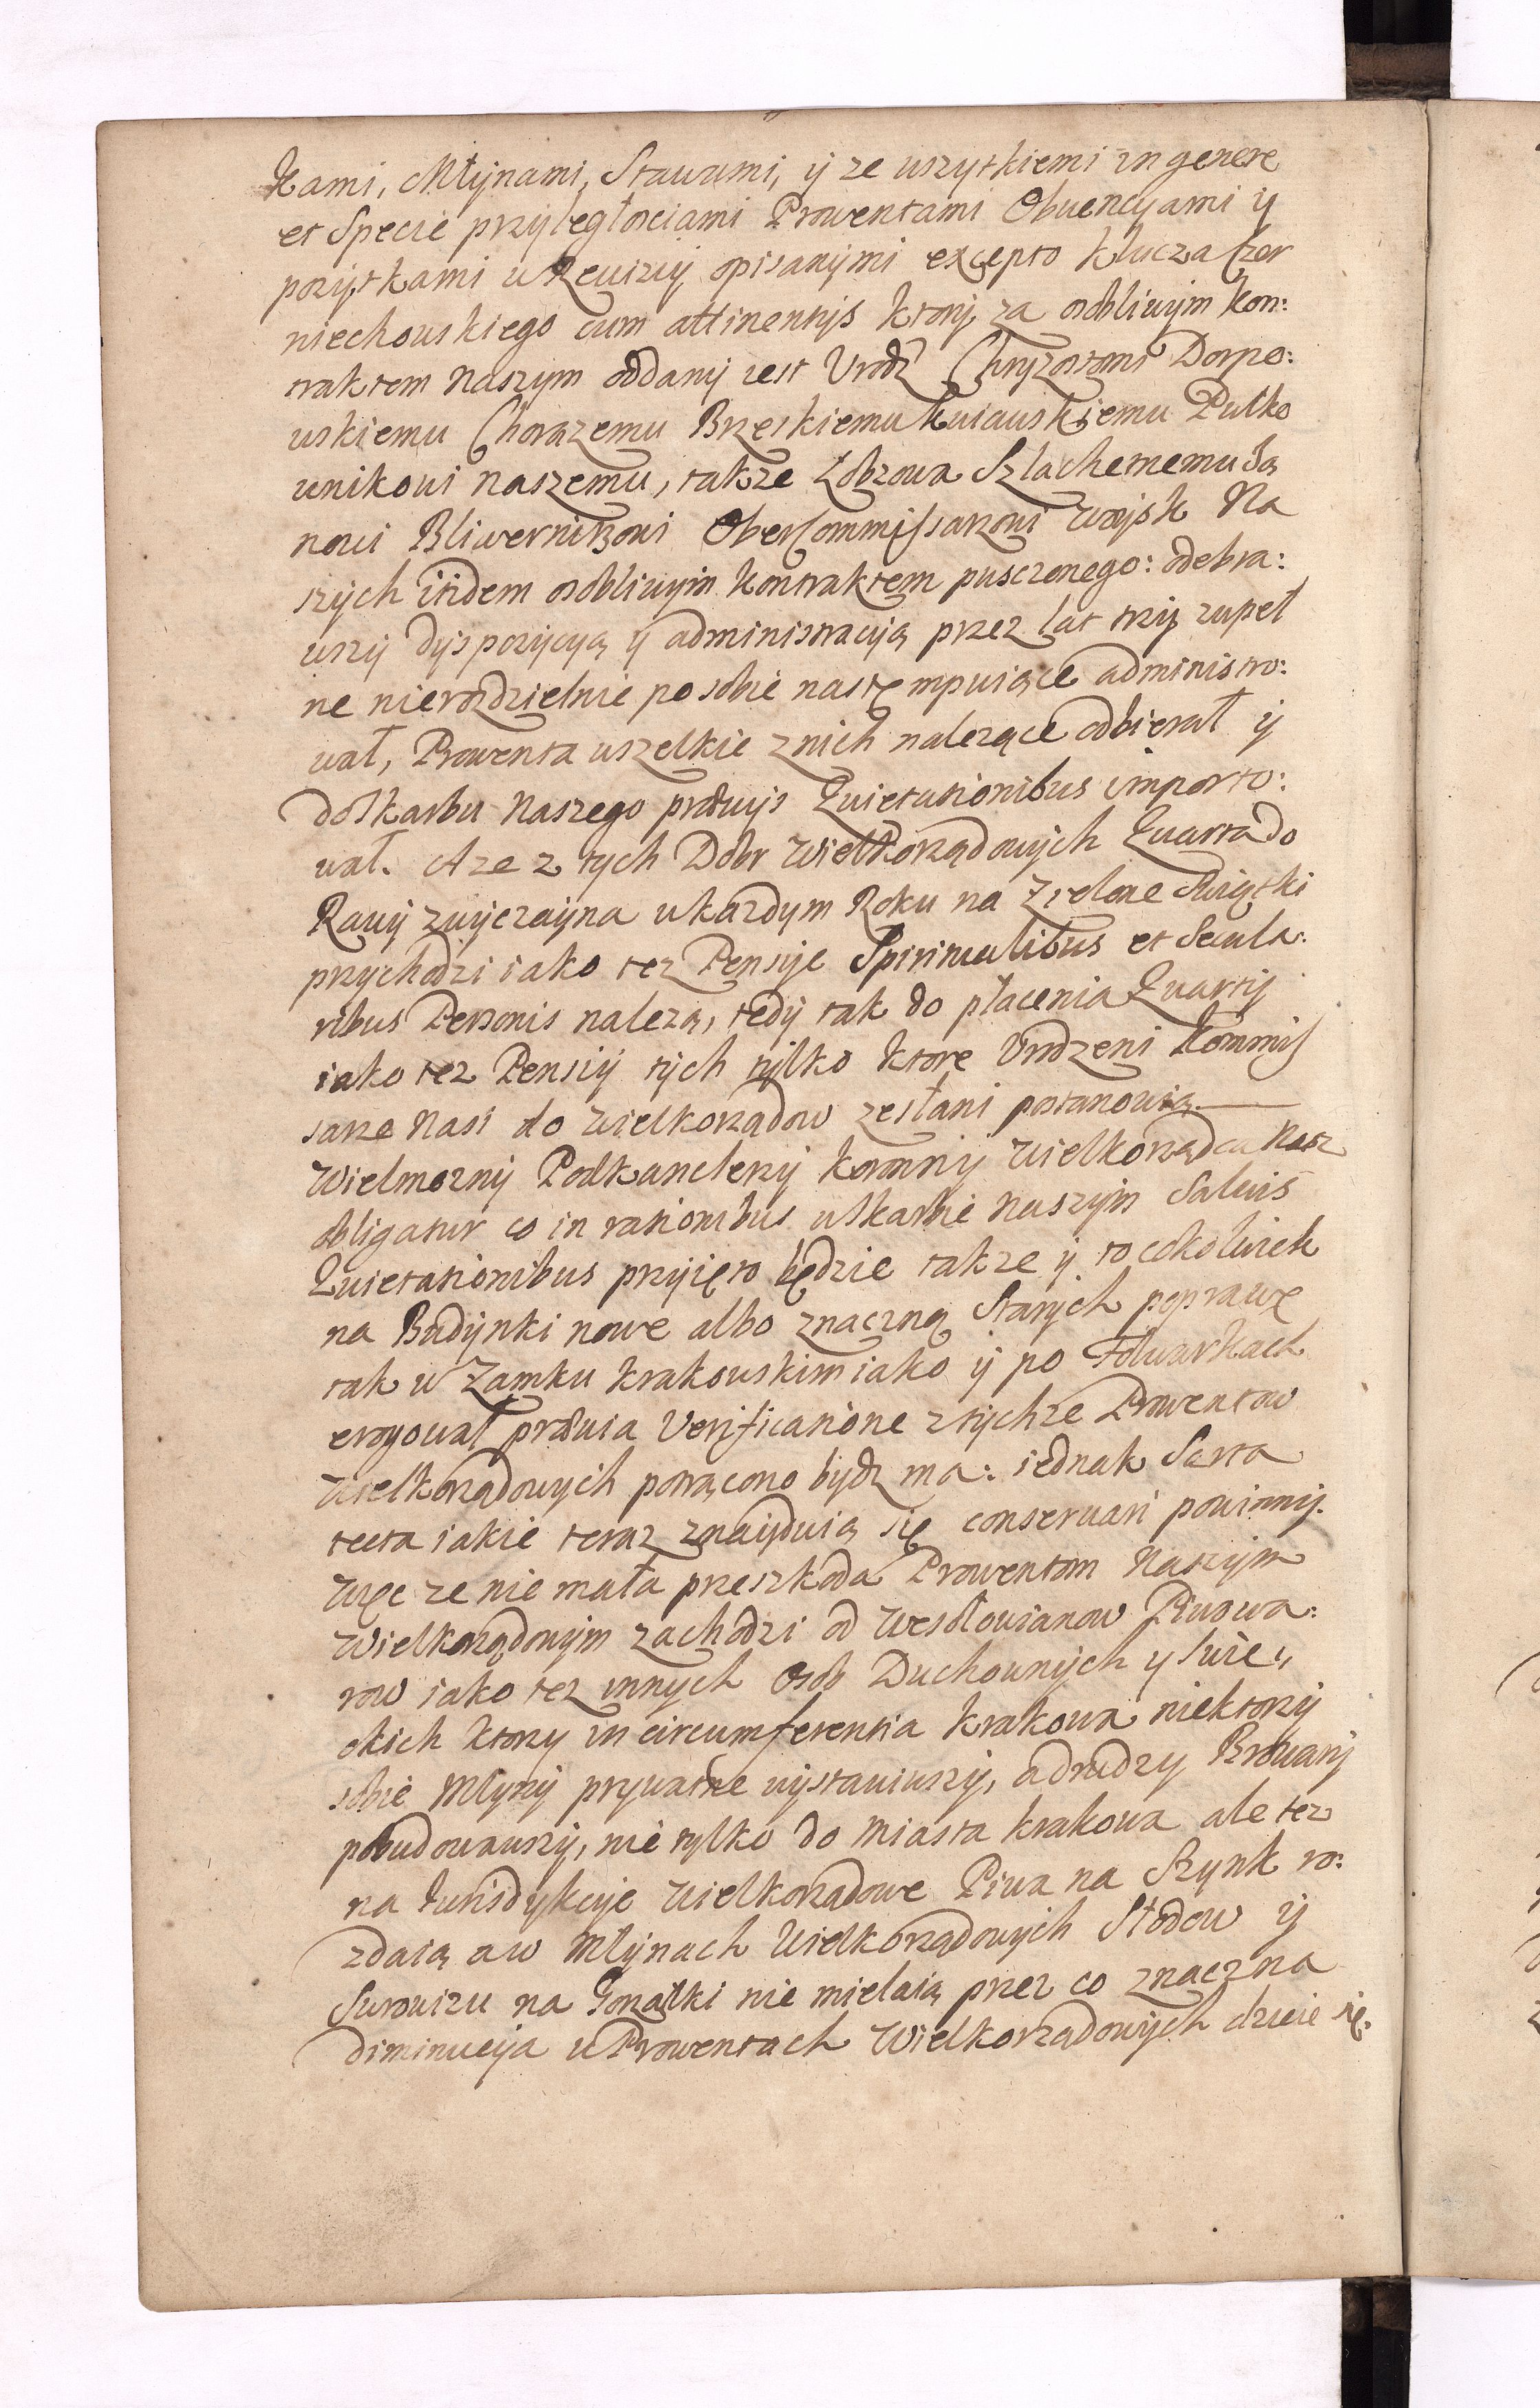 kami, Młynami, Stawami, ÿ ze wszytkiemi in genere
et Specie przÿległosciami Prowentami Obuencyami ÿ
pozÿtkami w Rewizÿi opisanÿmi excepto klucza Czer
niechowskiego cum attinentÿs ktorÿ za osobliwÿm kon:
traktem Naszym oddanÿ iest Urodz Chryzostomi Dorpo:
wskiemu Chorązemu Brzeskiemu Kuiawskiemu Pułko
wnikowi Naszemu, takze Łobzowa Szlachetnemu Ja
nowi Bliwernitzowi OberCommissarzowi Woÿsk Na
szÿch itidem osobliwÿm Kontraktem pusczonego: odebra:
wszÿ dÿspozÿcyą ÿ administracÿą przez lat trzÿ zupeł
ne nierozdzielnie po sobie następuiące administro:
wał, Prowenta wszelkie z nich nalezące odbierał ÿ
do Skarbu Naszego prævÿs Quietationibus importo:
wał. A ze z tych Dobr Wielkorządowÿch Quarta do
Rawÿ zwÿczaÿna w kazdym Roku na Zielone Swiątki
przÿchodzi iako tez Pensÿe Spiritualibus et Secula:
ribus Personis nalezą, tedÿ tak do płacenia Quartÿ
iako tez Pensiÿ tÿch tÿlko ktore Urodzeni Kommis
sarze Nasi do Wielkorządow zesłani postanowią
Wielmoznÿ Podkanclerzÿ Koronnÿ Wielkorądca Nasz
obligatur co in rationibus w Skarbie Naszÿm Salvis
Quietationibus przÿięto będzie takze ÿ to cokolwiek
na Budÿnki nowe albo znaczną Starÿch poprawę
tak w Zamku Krakowskim iako ÿ po Folwarkach
erogował prævia Verificatione z tÿchze Prowentow
Wielkorządowÿch potrącono bÿdz ma: iednak Sarta
tecta iakie teraz znaÿduią się conservari powinnÿ.
Więc ze nie mała przeszkoda Prowentom Naszÿm
Wielkorządowÿm zachodzi od Wesołowianow Piwowa:
row iako tez innÿch Osob Duchownÿch y Swie
ckich ktorzy in circumferentia Krakowa niektorzÿ
sobie Młynÿ prywatne wÿstawiwszÿ, a drudzy Browarÿ
pobudowawszÿ, nie tylko do Miasta Krakowa ale tez
na Jurisdykcye Wielkorządowe Piwa na Szynk ro:
zdaią a w Młÿnach Wielkorządowÿch Słodow ÿ
Surowizu na Gorzałki nie mielaią przez co znaczna
diminucÿa w Prowentach Wielkorządowÿch dzieie się.